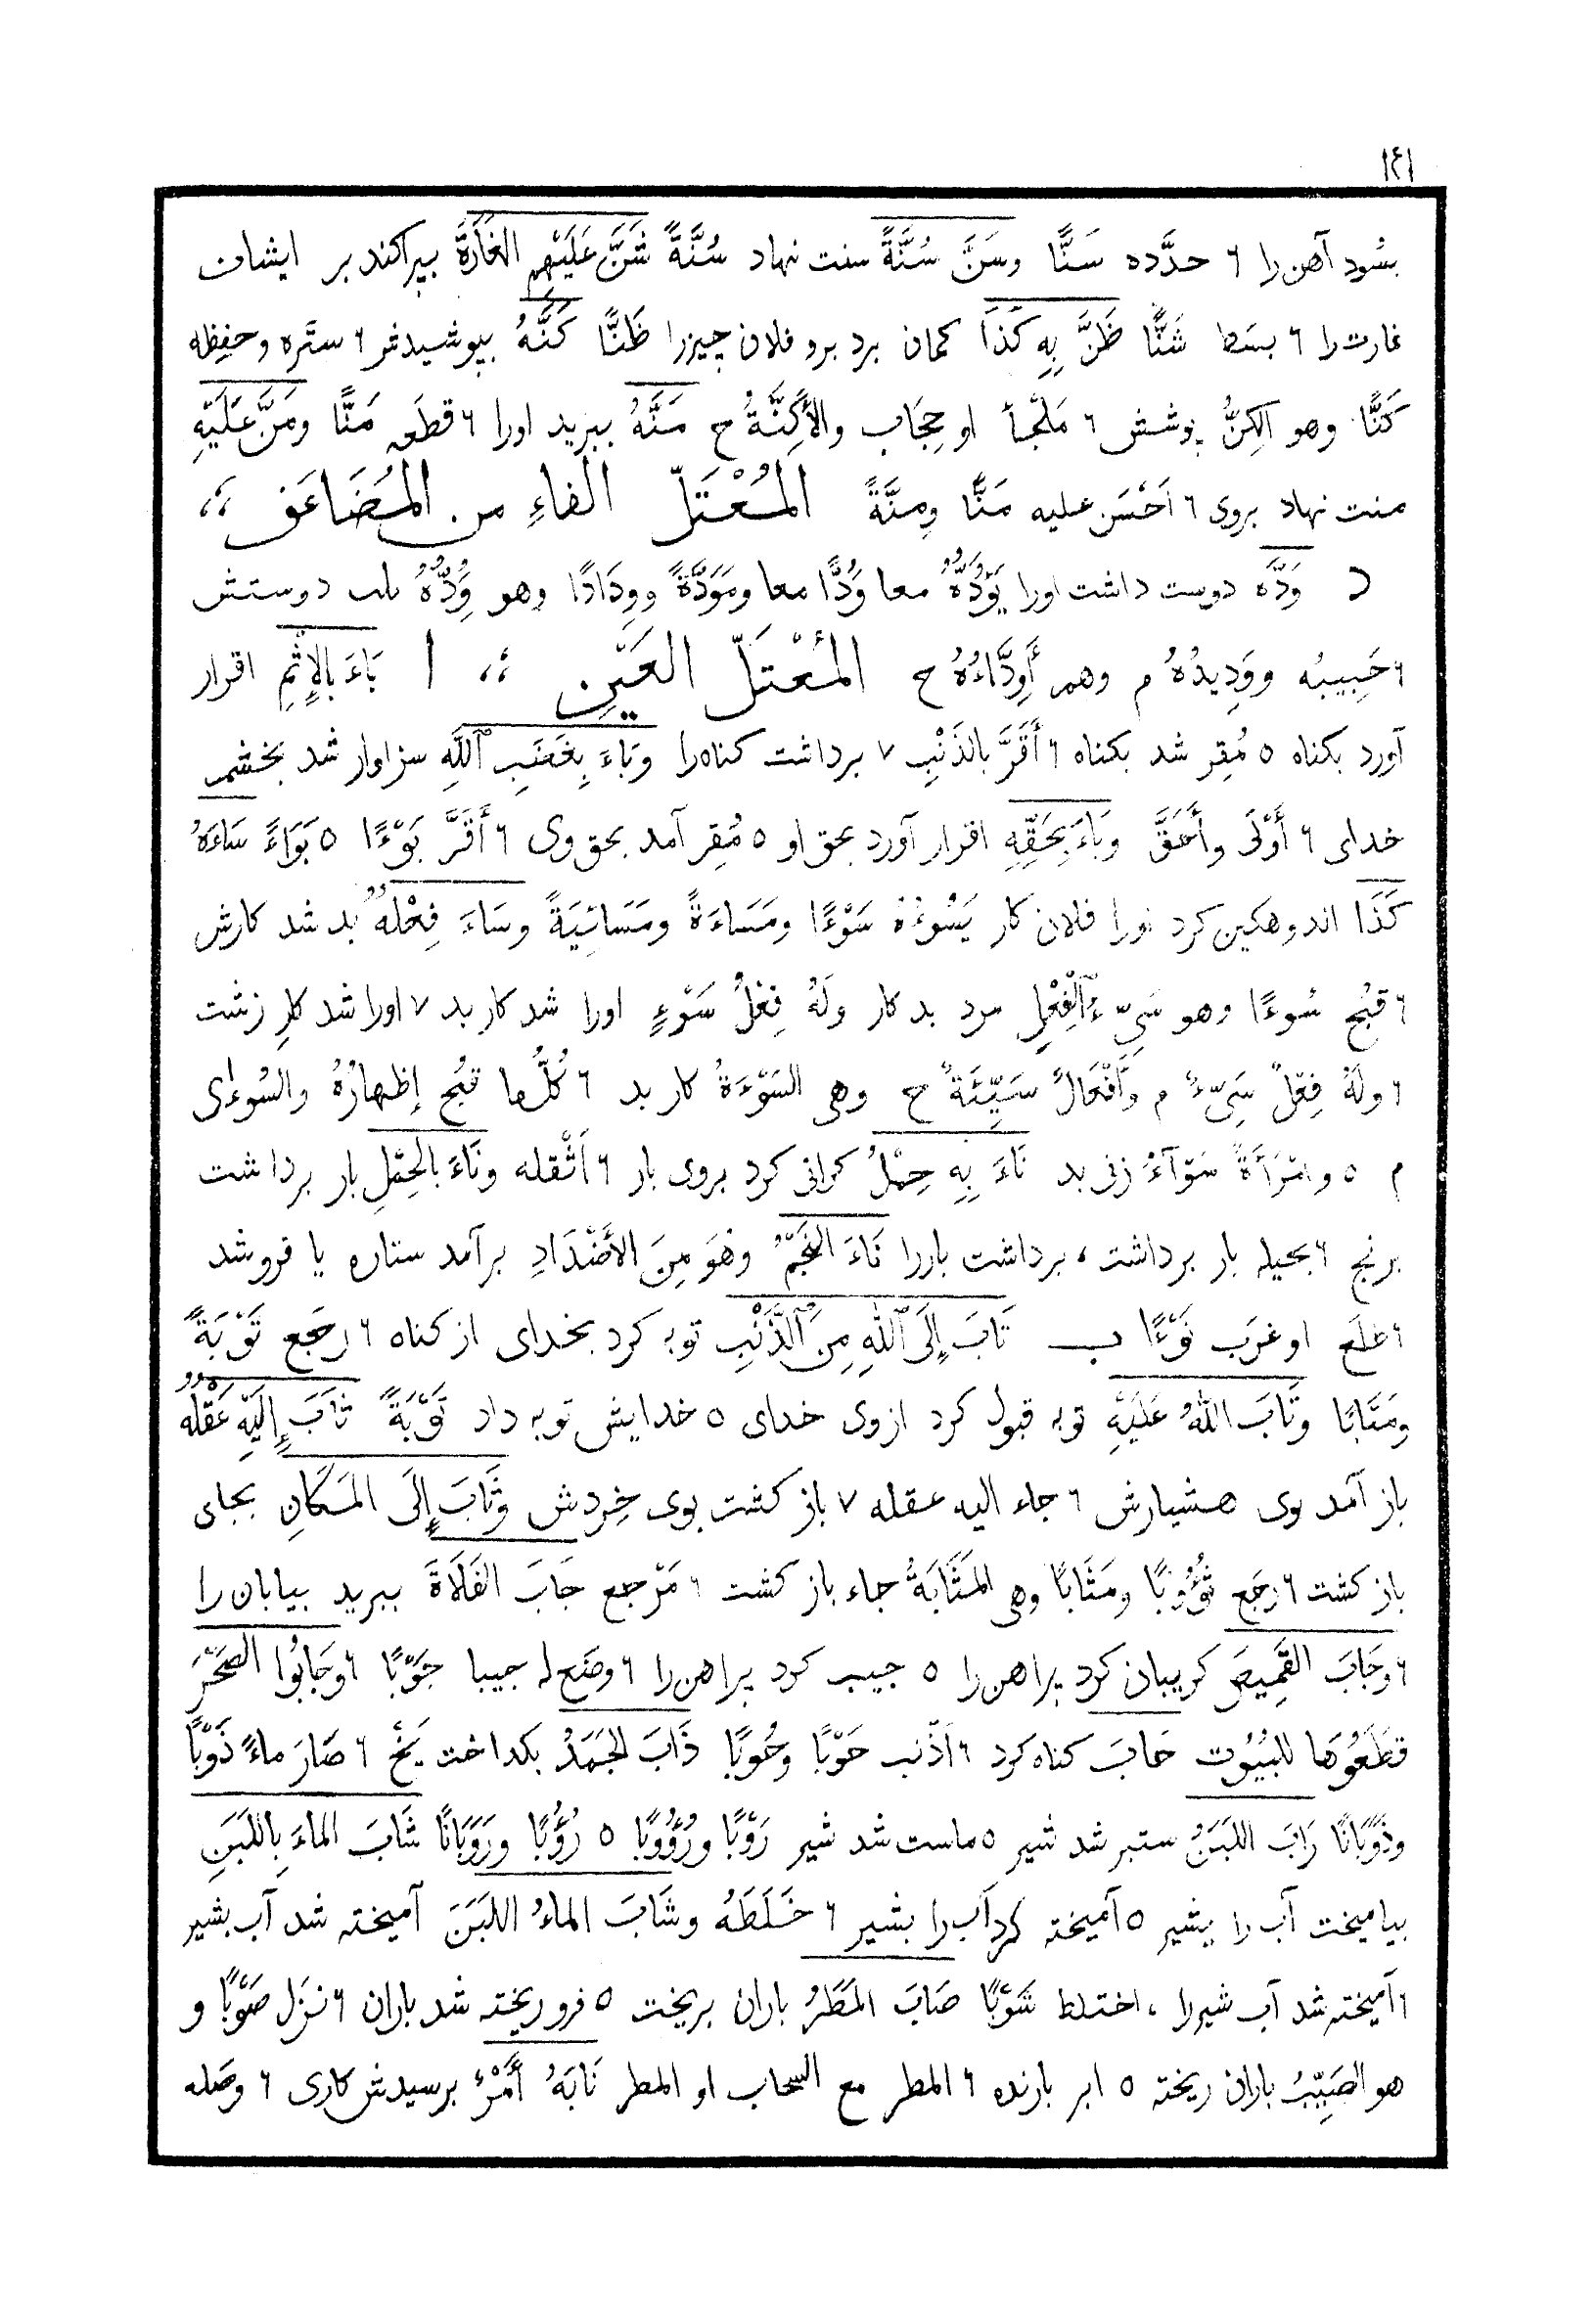 ١٤١
بسُود آهن را ٦ حدَّده سَنًّا وسَنَّ سُنَّةً سنت نهاد سُنَّةً شَنَّ عَلَيْهِم الغَارَةَ بپراکند بر ایشان
غارت را ٦ بسَط شَنًّا ظَنَّ بِهِ كَذَا کمان برد برو فلان چیزرا ظَنًّا كَنَّهُ بپوشیدش ٦ ستَره وحفِظه
كَنًّا وهو الكِنُّ پوشش ٦ مَلْجأ او حِجَاب والأَكِنَّةُ ح مَنَّهُ ببرید اورا ٦ قطَعه مَنًّا ومَنَّ عَلَيْهِ
منت نهاد بروی ٦ اَحْسَن علیه مَنًّا ومِنَّةً المُعْتَلّ الفاءِ من المُضَاعَف ،،
د وَدَّه دوست داشت اورا يَوَدُّهُ معا وُدًّا معا ومَوَدَّةً ووِدَادًا وهو وُدُّهُ دوستش
٦ حَبِيبُه ووَدِيدُهُ م وهم أَوِدَّاءُهُ ح المُعْتَلّ العَيْنِ ،، ا بَاءَ بِالإِثْمِ اقرار
آورد بکناه ٥ مُقِر شد بکناه ٦ أَقَرَّ بالذَنْبِ ٧ برداشت کناه را وبَاءَ بِغَضَبِ ٱللَّهِ سزاوار شد بخشم
خدای ٦ أَوْلَى وأَحَقَّ وبَاءَ بِحَقِّهِ اقرار آورد بحق او ٥ مُقِر آمد بحق وی ٦ أَقَرَّ بَوْءًا ٥ بَوَاءً سَاءَهُ
كَذَا اندوهکین کرد اورا فلان کار يَسُوءُهُ سَوْءًا ومَسَاءَةً ومَسَائِيَةً وسَاءَ فِعْلُهُ بد شد کارش
٦ قبُح سُوءًا وهو سَيِّءُ ٱلْفِعْلِ مرد بد کار ولَهُ فِعْلُ سَوْءٍ اورا شد کار بد ٧ اورا شد کار زشت
٦ ولَهُ فِعْلٌ سَيِّءٌ م وأَفْعَالٌ سَيِّئَةٌ ح وهی السَوْءَةُ کار بد ٦ كُلُّ ما قبُح إظهارُهُ والسُوءٰى
م ٥ وامْرَأَةٌ سَوْآءُ زنی بد نَاءَ بِهِ حِمْلٌ کرانی کرد بروی بار ٦ اَثْقله ونَاءَ بالحِمْلِ بار برداشت
برنج ٦ بحیله بار برداشت ، برداشت باررا نَاءَ النَجْمُ وهَوَ مِنَ الأَضْدَادِ برآمد ستاره یا فرو شد
٦ طلَع او غرَب نَوْءًا ب تَابَ إِلَى ٱللَّهِ مِنَ ٱلذَّنْبِ توبه کرد بخدای از کناه ٦ رجَع تَوْبَةً
ومَتَابًا وتَابَ اللهُ عَلَيْهِ توبه قبول کرد ازوی خدای ٥ خدایش توبه داد تَوْبَةً ثابَ إِلَيْهِ عَقْلُهُ
باز آمد بوی هشیارش ٦ جاء الیه عقله ٧ باز کشت بوی خِردش وثَابَ إِلَى المَكَانِ بجای
باز کشت ٦ رجَع ثُؤُوبًا ومَثَابًا وهی المَثَابَةُ جاء باز کشت ٦ مَرْجع جَابَ الفَلَاةَ ببرید بیابان را
٦ وجَابَ القَمِيصَ کریبان کرد پراهن را ٥ جیب کرد پراهن را ٦ وضَع له جیبا جَوْبًا ٦ وجَابُوا الصَخْرَ
قطَعُوهَا للبُيُوت حَابَ کناه کرد ٦ اَذْنب حَوْبًا وحُوبًا ذَابَ الجَمَدُ بکداخت یَخ ٦ صَارَ ماءً ذَوْبًا
وذَوَبَانًا رَابَ اللبَنُ ستبر شد شیر ٥ ماست شد شیر رَوْبًا ورُؤُوبًا ٥ رُؤْبًا ورَوَبَانًا شَابَ الماءَ بِاللبَنِ
بیامیخت آب را بشیر ٥ آمیخته کرد آب را بشیر ٦ خَلَطَهُ وشَابَ الماءُ اللبَنَ آمیخته شد آب بشیر
٦ آمیخته شد آب شیررا ، اختلط شَوْبًا صَابَ المَطَرُ باران بریخت ٥ فرو ریخته شد باران ٦ نزَل صَوْبًا و
هو الصَيِّبُ باران ریخته ٥ ابر بارنده ٦ المطر مع السحاب او المطر نَابَهُ أَمْرٌ برسیدش کاری ٦ وصَله